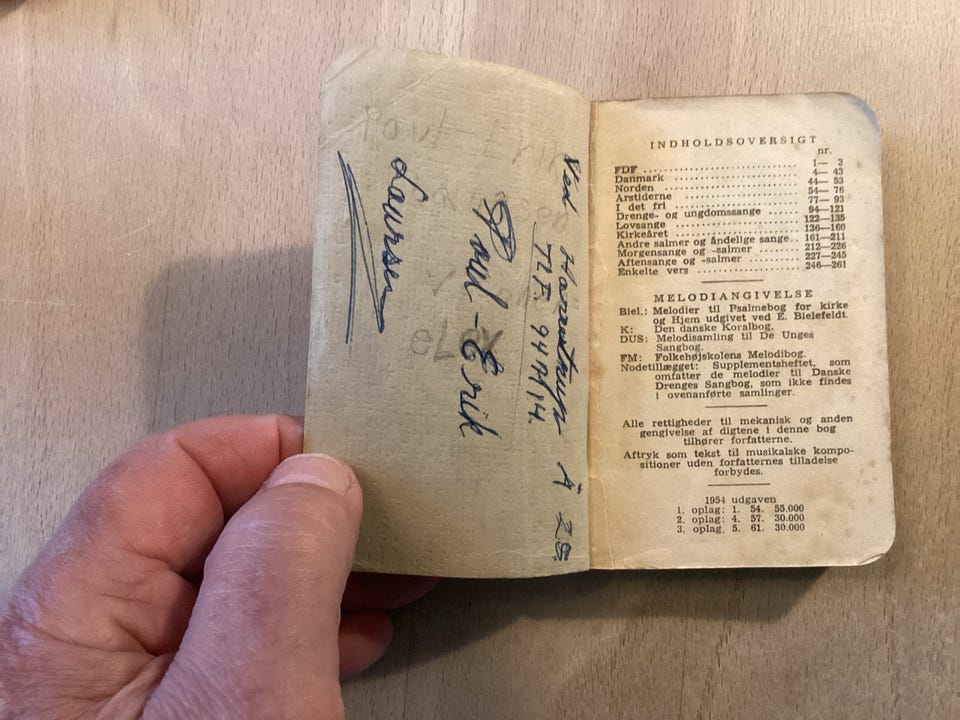 Poul-Erik
Laursen
Poul-Erik
INDHOLDSOVERSIGT
nr.
FDF ........ 1— 3
Danmark ........ 4— 43
Norden ........ 44— 53
Årstiderne ........ 54— 76
I det fri ........ 77— 93
Drenge- og ungdomssange ........ 94—121
Lovsange ........ 122—135
Kirkeåret ........ 136—160
Andre salmer og åndelige sange.. 161—211
Morgensange og -salmer ........ 212—226
Aftensange og -salmer ........ 227—245
Enkelte vers ........ 246—261
MELODIANGIVELSE
Biel.: Melodier til Psalmebog for kirke
og Hjem udgivet ved E. Bielefeldt.
K: Den danske Koralbog.
DUS: Melodisamling til De Unges
Sangbog.
FM: Folkehøjskolens Melodibog.
Nodetillægget: Supplementsheftet, som
omfatter de melodier til Danske
Drenges Sangbog, som ikke findes
i ovenanførte samlinger.
Alle rettigheder til mekanisk og anden
gengivelse af digtene i denne bog
tilhører forfatterne.
Aftryk som tekst til musikalske kompo-
sitioner uden forfatternes tilladelse
forbydes.
1954 udgaven
1. oplag: 1. 54. 55.000
2. oplag: 4. 57. 30.000
3. oplag. 5. 61. 30.000